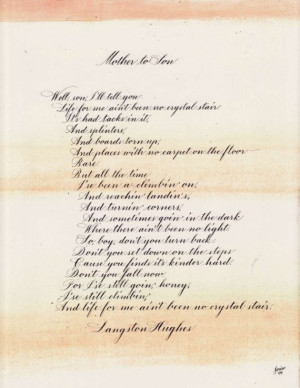 Mother to Son
Well, son, I'll tell you
Life for me ain't been no crystal stair
It's had tacks in it,
And splinters,
And boards torn up,
And places with no carpet on the floor
Bare
But all the time
I'se been a climbin' on,
And reachin' landin's,
And turnin' corners,
And sometimes goin' in the dark
Where there ain't been no light
So, boy, don't you turn back
Don't you set down on the steps
'Cause you finds it's kinder hard
Don't you fall now
For I'se still goin', honey,
I'se still climbin',
And life for me ain't been no crystal stair.
Langston Hughes